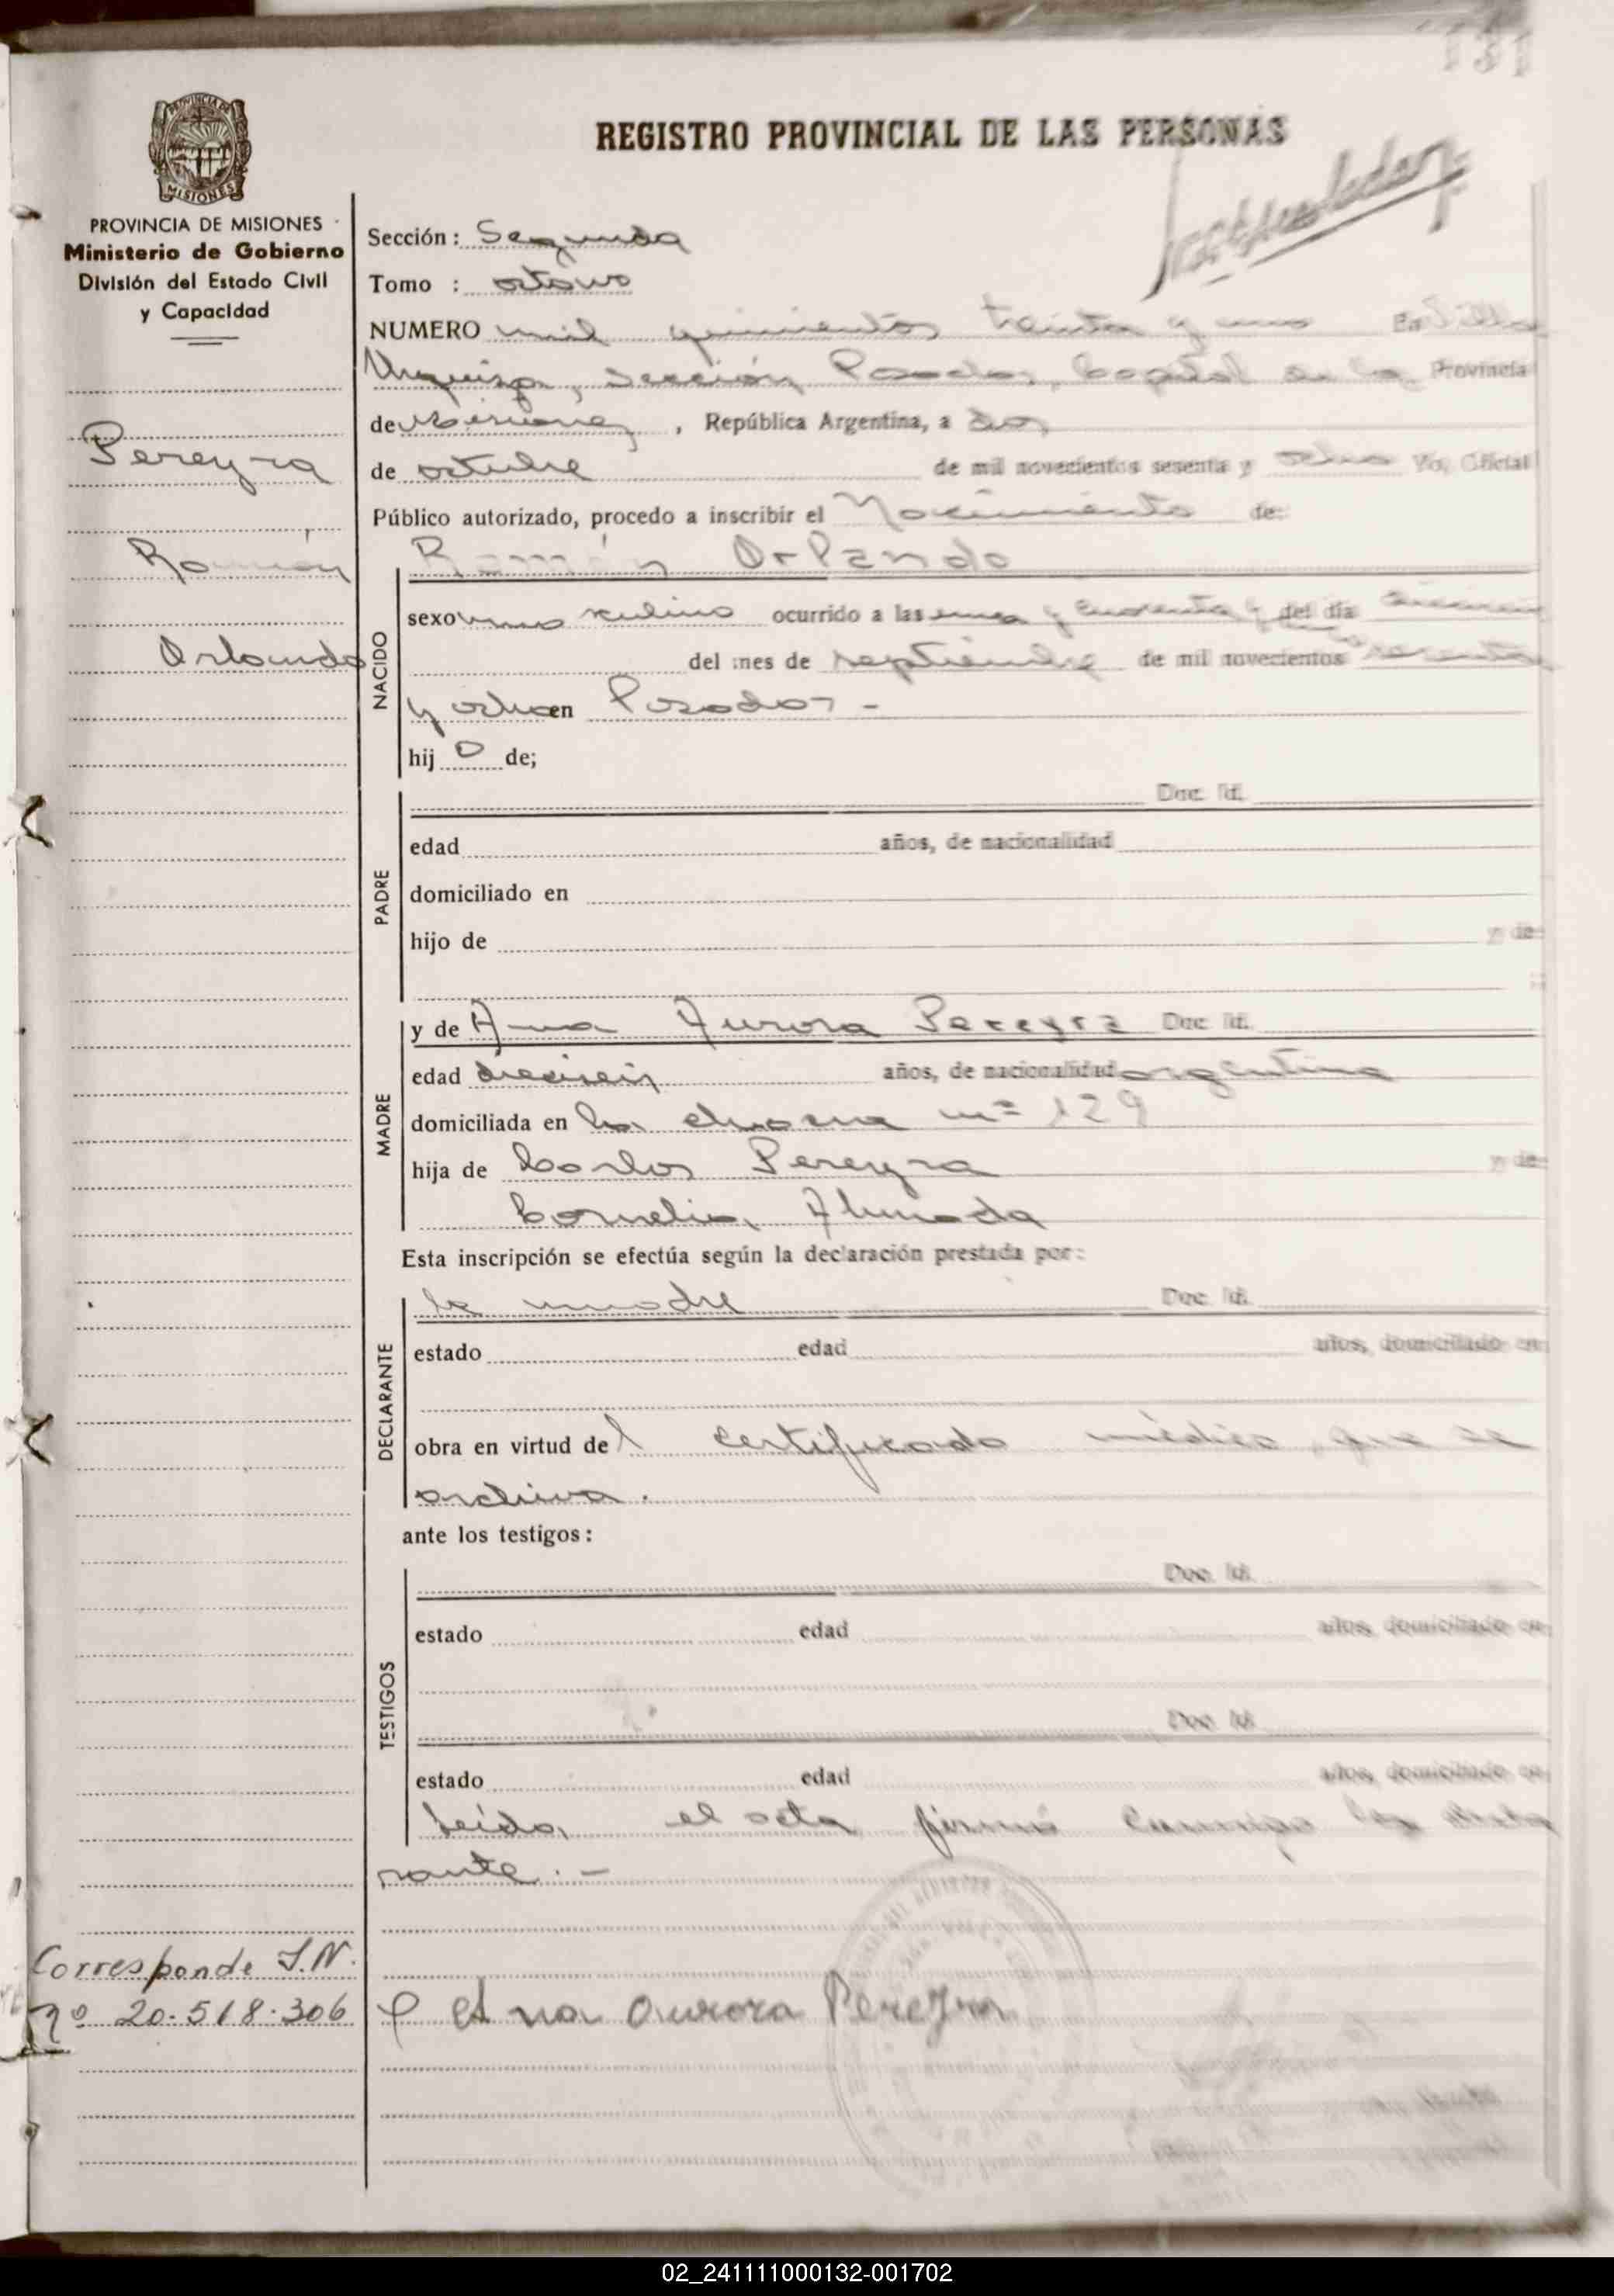 131
REGISTRO PROVINCIAL DE LAS PERSONAS
PROVINCIA DE MISIONES
MISIONES
PROVINCIA DE MISIONES
Ministerio de Gobierno
División del Estado Civil
y Capacidad
Pereyra
Ramón
Orlando
Corresponde I.N.
nº 20.518.306
Sección: Segunda
Tomo : octavo
NUMERO mil quinientos treinta y uno En Villa
Urquiza, Sección Posadas, Capital de la Provincia
de Misiones, República Argentina, a dos
de octubre de mil novecientos sesenta y ocho Yo, Oficial
Público autorizado, procedo a inscribir el Nacimiento de:
NACIDO
Ramón Orlando
sexo masculino ocurrido a las y cuarenta y del día
del mes de septiembre de mil novecientos sesenta
y ocho en Posadas -
hij o de;
PADRE
Doc. Id.
edad años, de nacionalidad
domiciliado en
hijo de y de:
MADRE
y de Ana Aurora Pereyra Doc. Id.
edad dieciseis años, de nacionalidad argentina
domiciliada en la chacra nº 129
hija de Carlos Pereyra y de:
Cornelia Almada
Esta inscripción se efectúa según la declaración prestada por:
DECLARANTE
la madre Doc. Id.
estado edad años, domiciliado en
obra en virtud del certificado médico, que se
archiva.
ante los testigos:
TESTIGOS
Doc. Id.
estado edad años, domiciliado en
Doc. Id.
estado edad años, domiciliado en
Leída el acta firma conmigo la decla
rante. -
Ana Aurora Pereyra
02_241111000132-001702